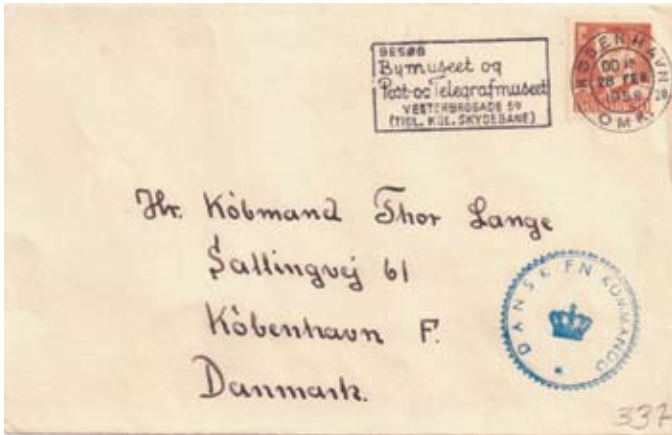 BESØG
Bymuseet og
Post-og Telegrafmuseet
VESTERBROGADE 59
(TIDL. KGL. SKYDEBANE)
KØBENHAVN
28 FEB
OMK.
Hr. Köbmand Thor Lange
Sallingvej 61
Köbenhavn F.
Danmark.
DANSK FN KOMMANDO
337